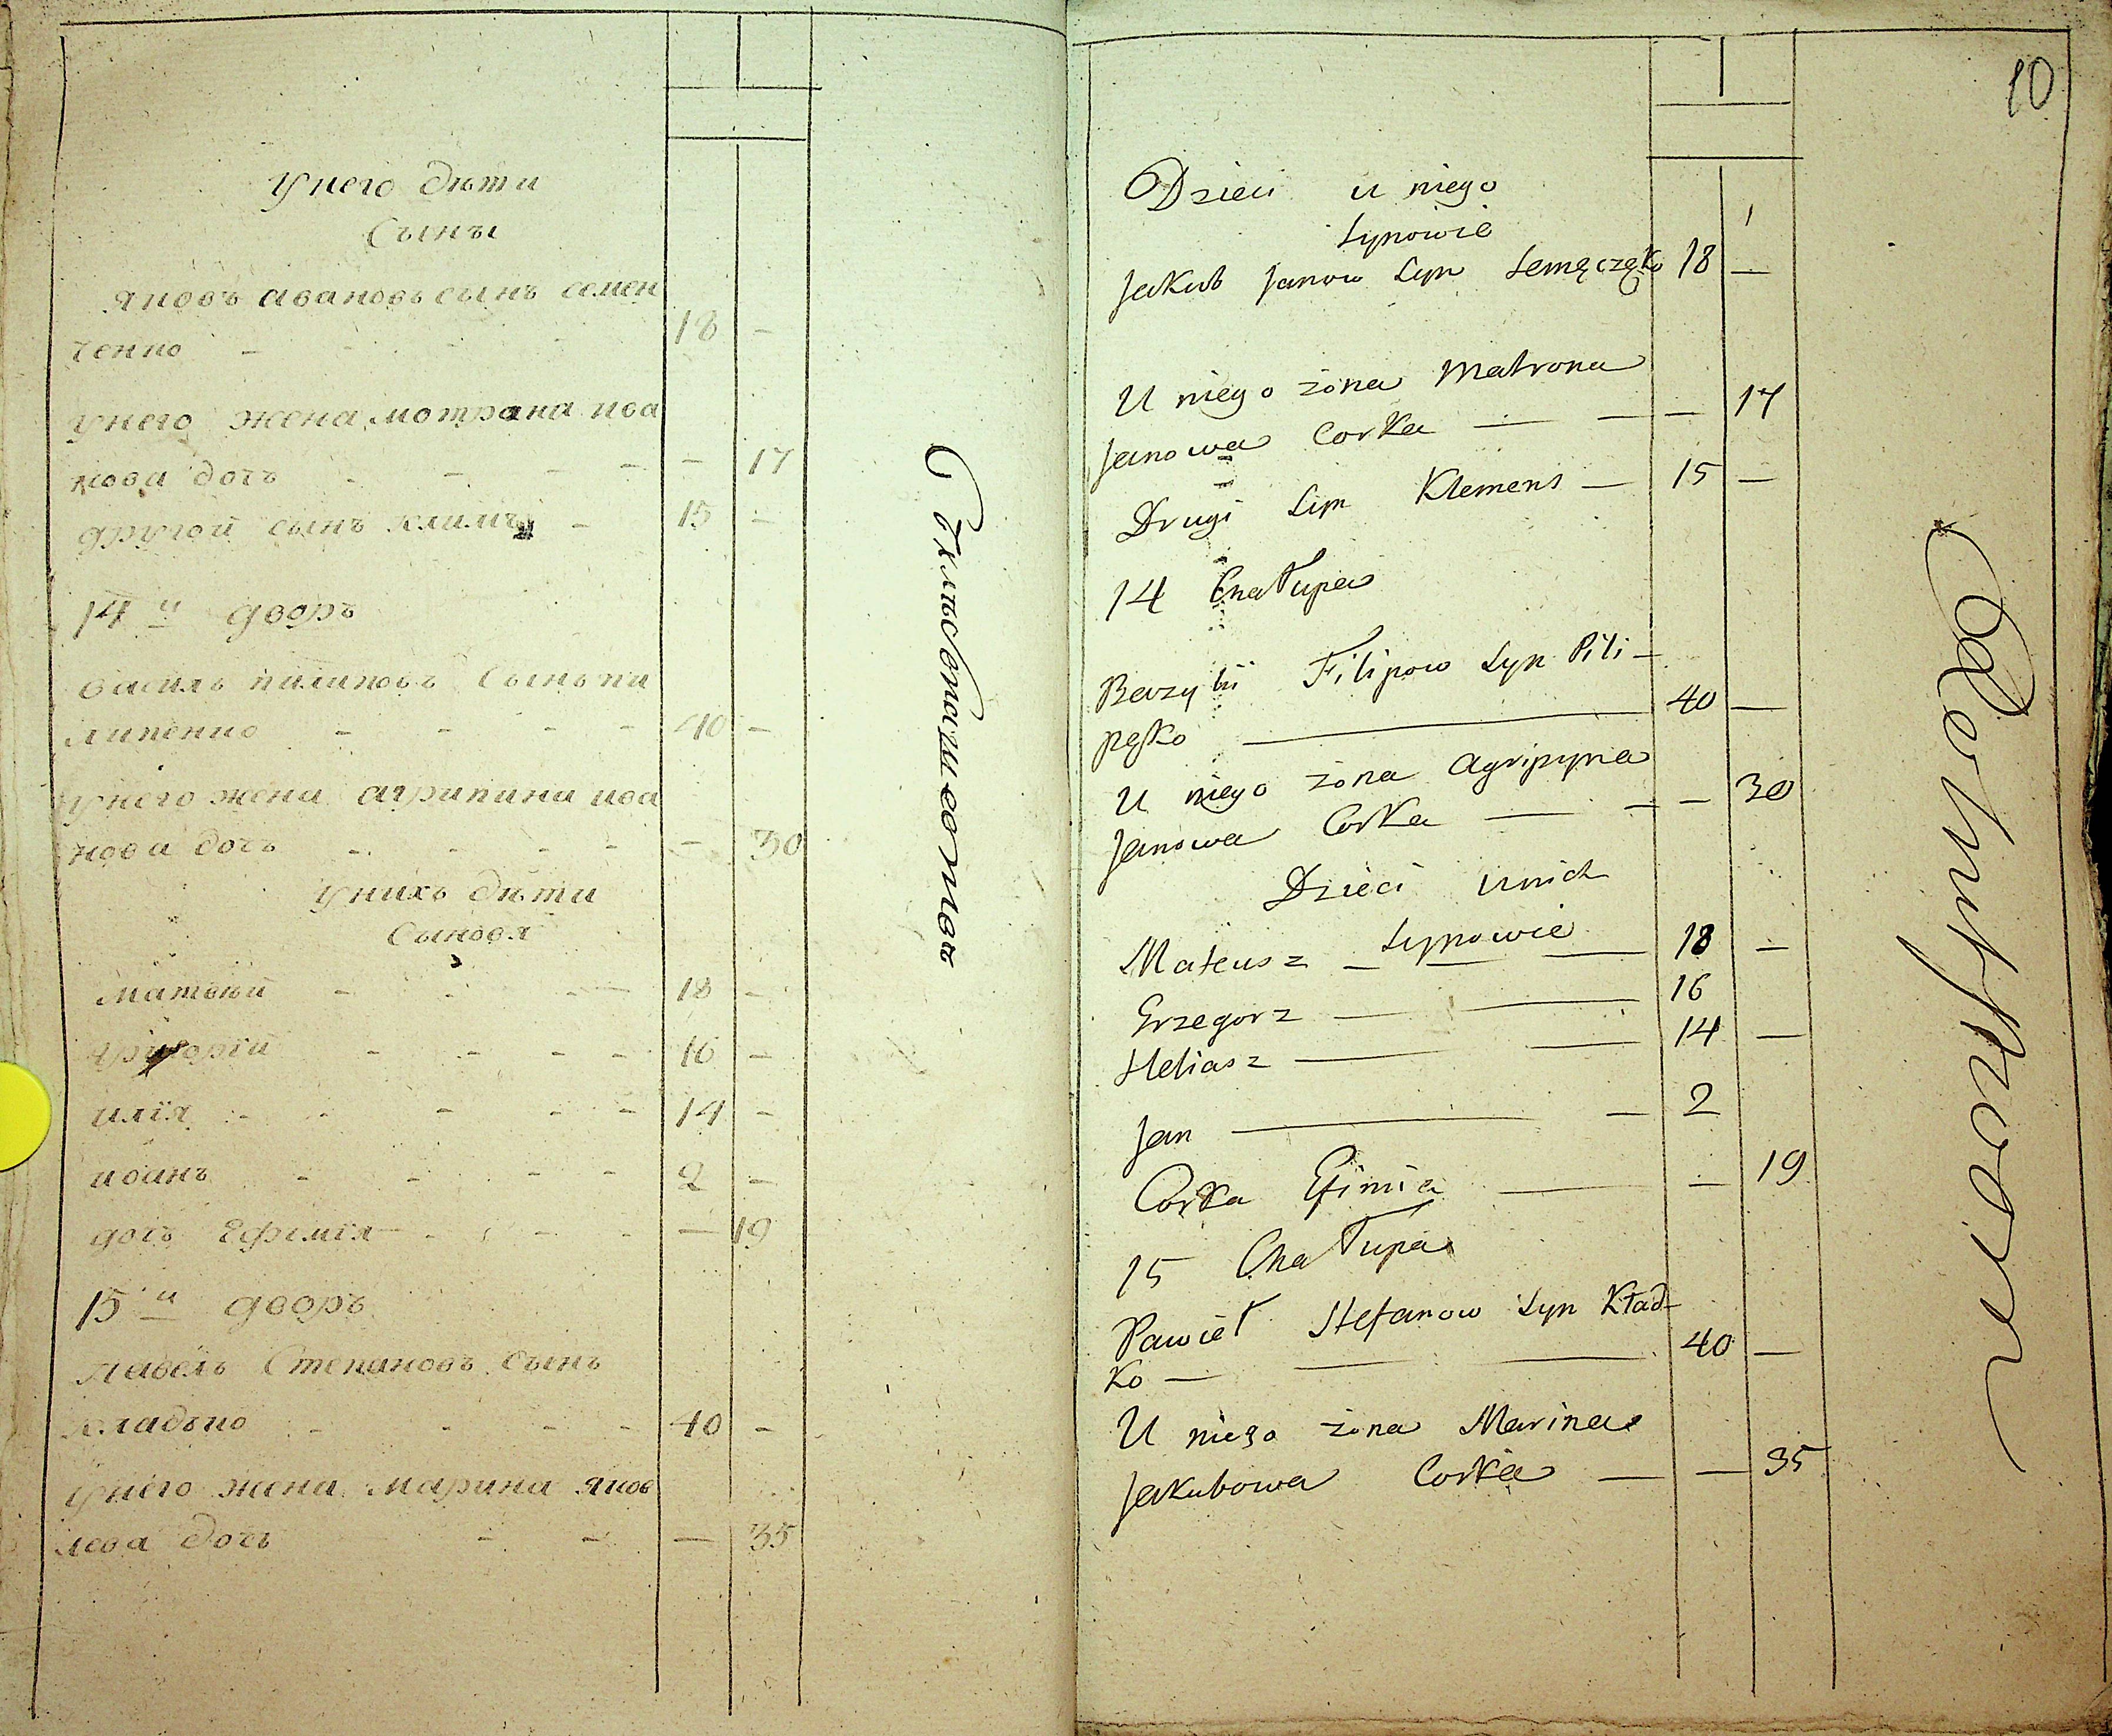 Унего дѣти
Сыны
яковъ авановъ сынъ семен
ченко - - - - 18 -
унего жена мотрана ива
нова дочъ - - - - - 17
другой сынъ климъ - 15 -
14й дворъ
василь пилиповъ сынъ пи
липенко - - - - 40 -
унего жена агрипина ива
нова дочъ - - - - - 30
Унихъ дѣти
Сыновя
матвѣй - - - 18 -
григорій - - - - 16 -
илія - - - - - 14 -
иванъ - - - - 2 -
дочъ Ефимія - - - - 19
15й дворъ
павелъ Степановъ сынъ
кладько - - - - 40 -
унего жена марина яков
лева дочъ - - - 35
10
Dzieci u niego
Synowie
Jakub Janow Syn Semęczęko 18 —
U niego żona Matrona
Janowa Corka — — — 17
Drugi Syn Klemens — 15 —
14 Chałupa
Bazylii Filipow Syn Pili-
pęko — 40 —
U niego żona Agripyna
Janowa Corka — — — 30
Dzieci u nich
Synowie
Mateusz — — — 18 —
Grzegorz — — 16
Heliasz — — 14 —
Jan — — 2
Corka Efimia — — 19
15 Chałupa
Pawieł Stefanow Syn Kład-
ko — — — 40 —
U niego żona Marina
Jakubowa Corka — — 35